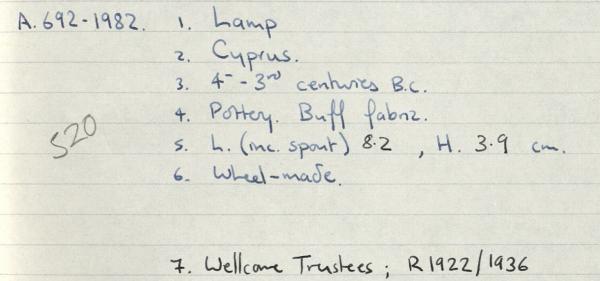 A.692-1982. 1. Lamp
2. Cyprus.
3. 4th-3rd centuries B.C.
4. Pottery. Buff fabric.
520
5. L. (inc. spout) 8.2 , H. 3.9 cm.
6. Wheel-made.
7. Wellcome Trustees ; R1922/1936